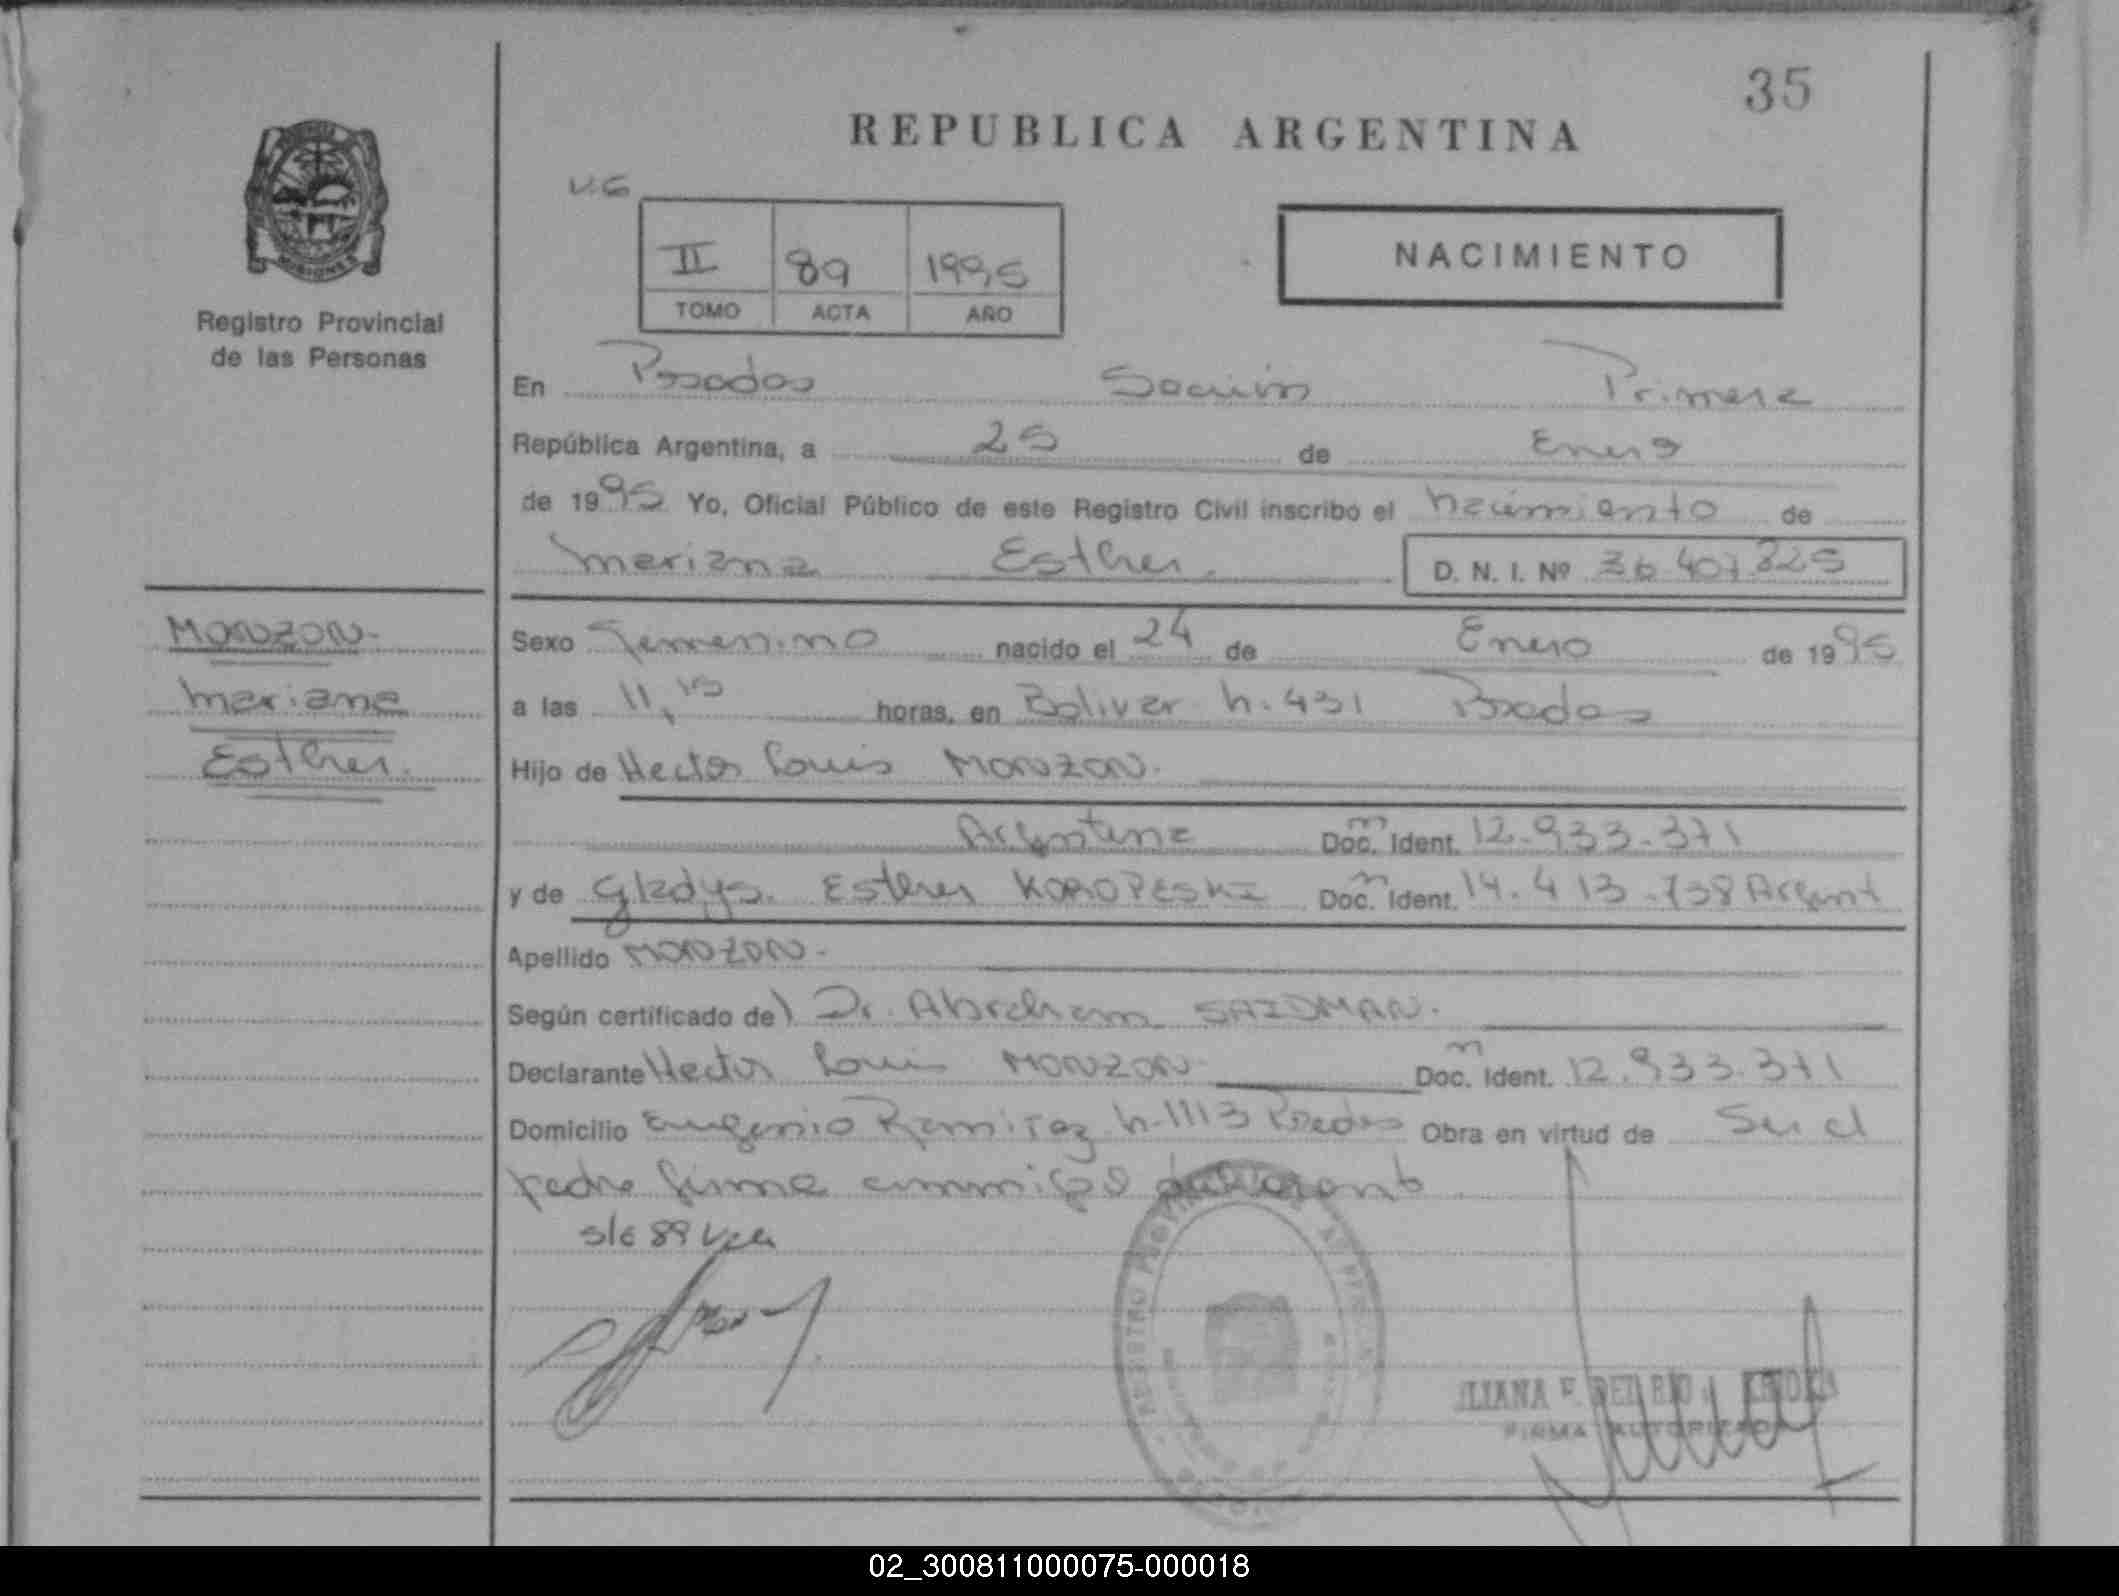 35
REPUBLICA ARGENTINA
V.G
II 89 1995
TOMO ACTA AÑO
NACIMIENTO
MISIONES
Registro Provincial
de las Personas
En Posadas Sección Primera
República Argentina, a 25 de Enero
de 1995 Yo, Oficial Público de este Registro Civil inscribo el nacimiento de
Mariana Esther. D. N. I. Nº 36.407.825
MONZON.
Mariana
Esther.
Sexo Femenino nacido el 24 de Enero de 1995
a las 11,15 horas, en Bolivar n. 431 Posadas
Hijo de Hector Louis MONZON.
Argentina Doc. Ident. 12.933.371
y de Gladys. Esther KOROPESKI Doc. Ident. 14.413.738 Argent
Apellido MONZON.
Según certificado de) Dr. Abraham SAIDMAN.
Declarante Hector Louis MONZON Doc. Ident. 12.933.371
Domicilio Eugenio Ramirez n. 1113 Posadas Obra en virtud de Ser el
padre firma conmigo
s/c 89
FIRMA AUTORIZADA
02_300811000075-000018